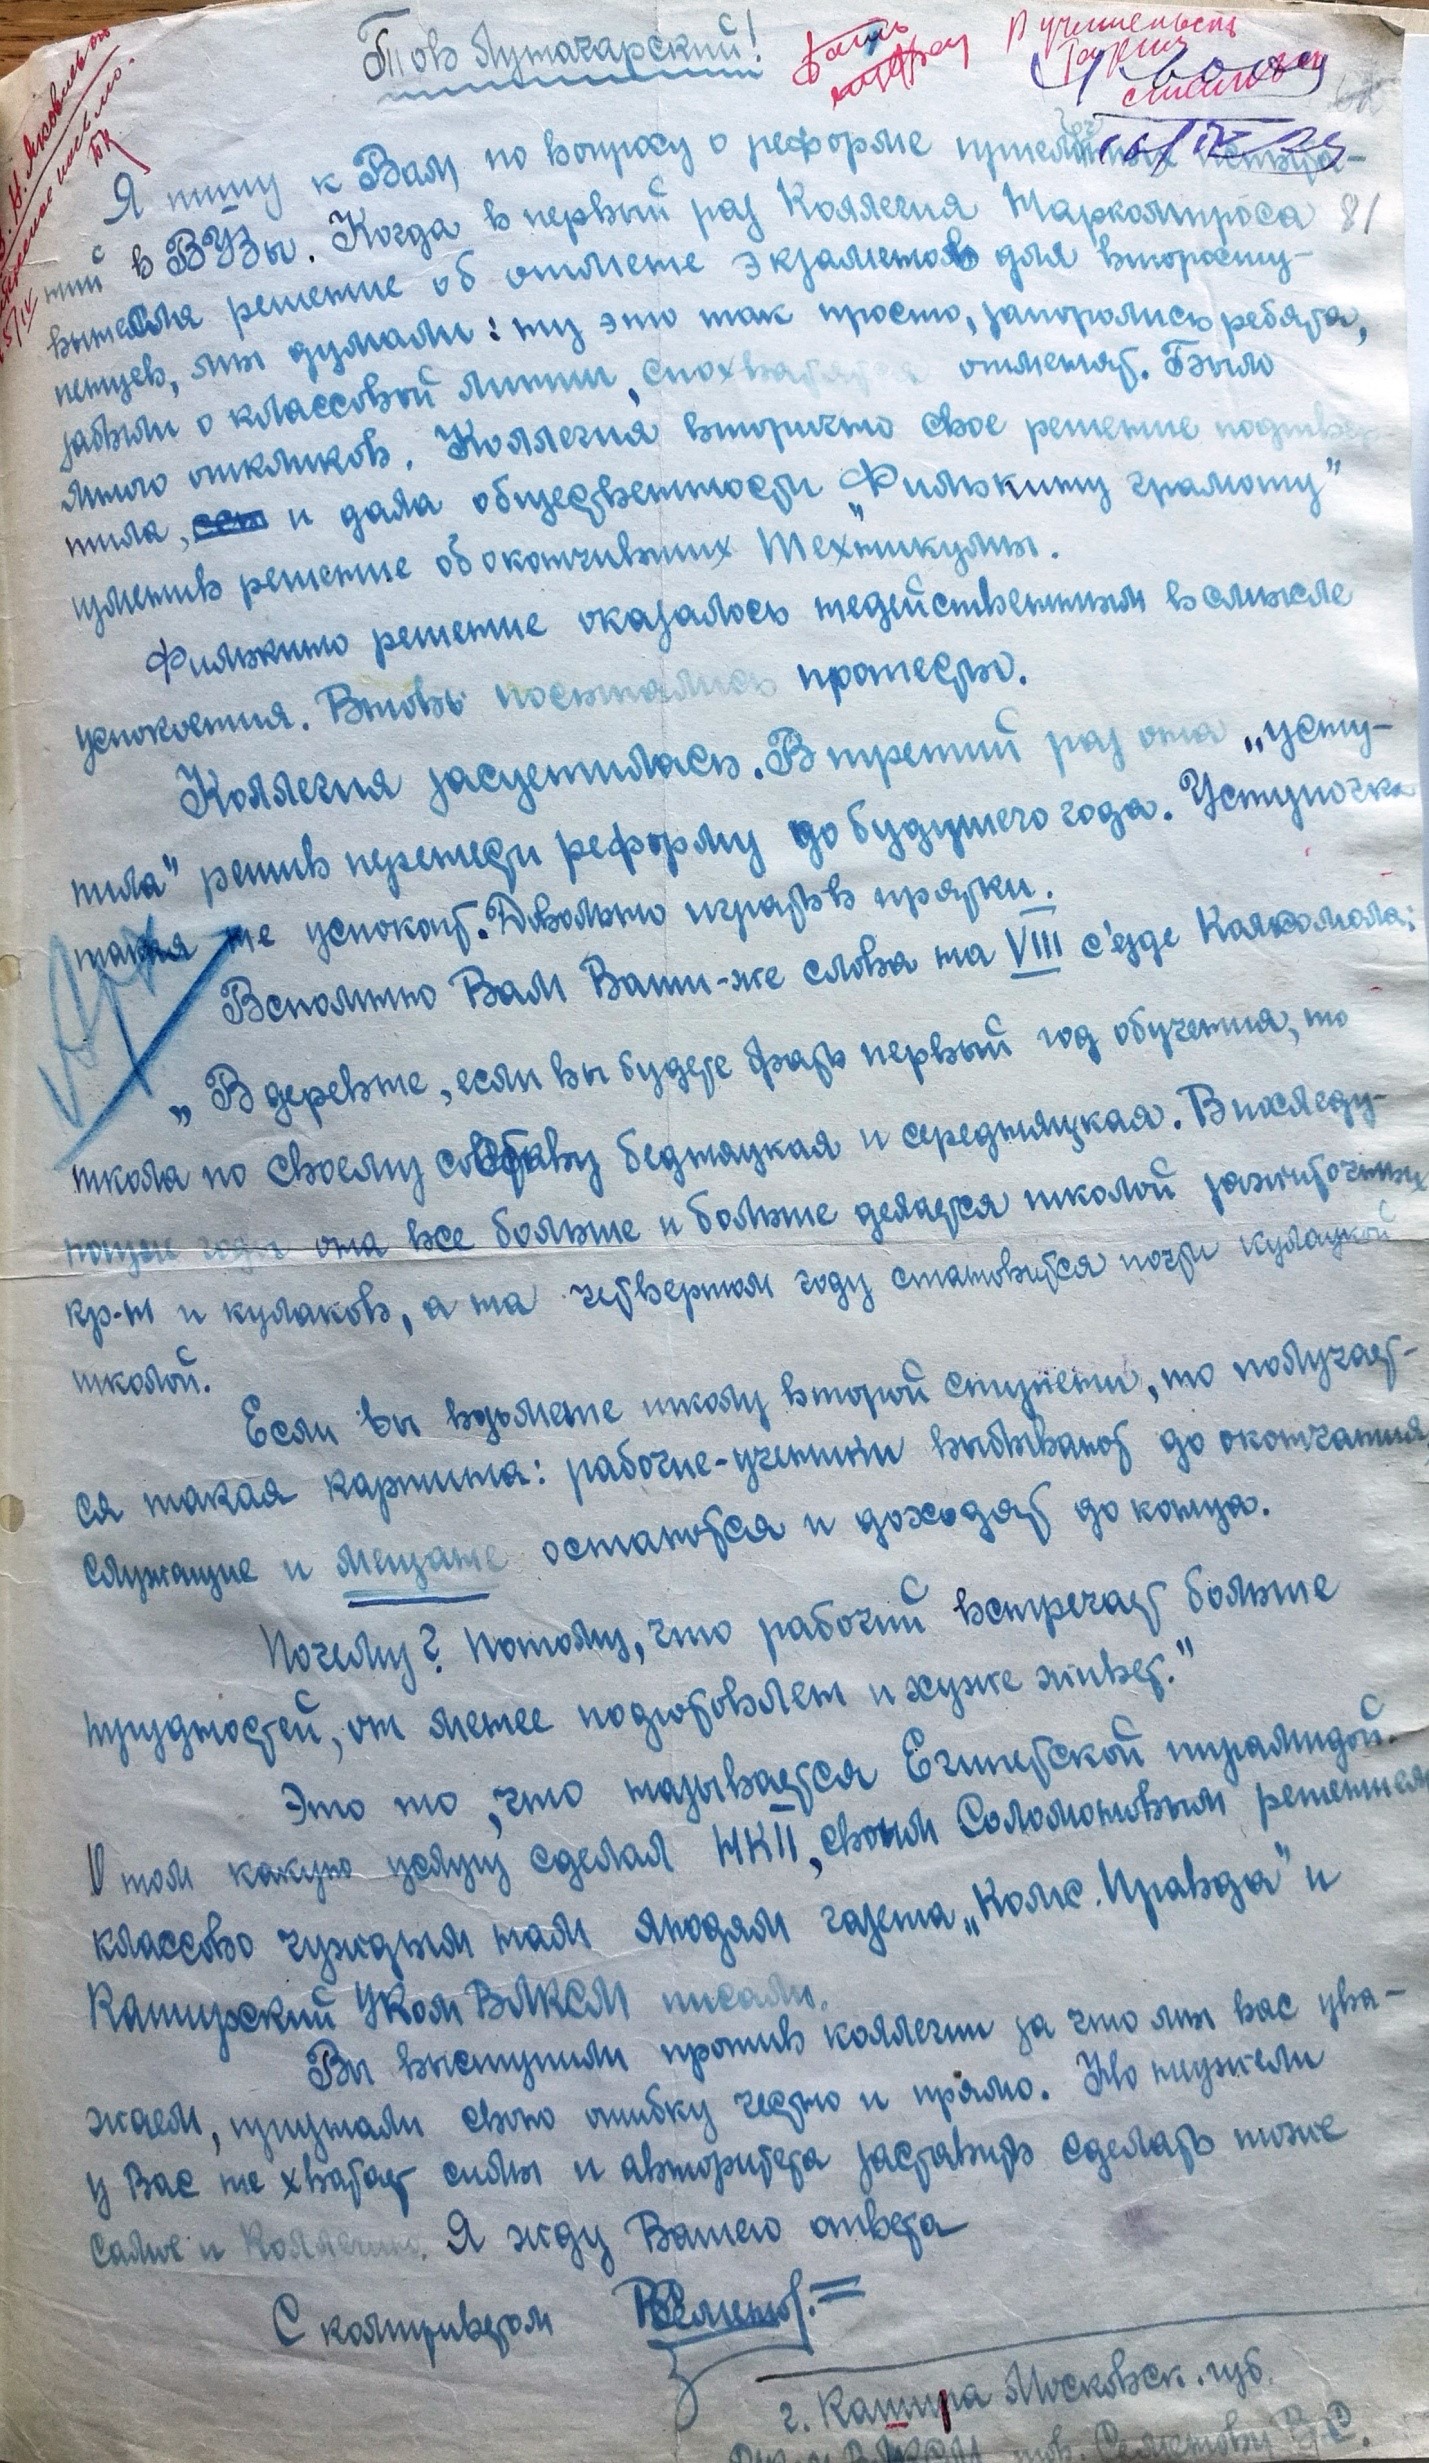 Тов Луначарский!
Я пишу к Вам по вопросу о реформе
тий в ВУЗы. Когда в первый раз Коллегия Наркомпроса
81
вынесла решение об отмене экзаменов для второсту-
пенцев, мы думали: ну это так просто, запоролись ребята,
забыли о классовой линии, спохватятся отменят. Было
много откликов. Коллегия вторично свое решение подтвер
тила, и дала общественности „Филькину грамоту"
изменив решение об окончивших Техникумы.
Филькино решение оказалось недейственным в смысле
успокоения. Вновь посыпались протесты.
Коллегия засуетилась. В третий раз она „усту-
пила" решив перенести реформу до будущего года. Уступочка
такая не успокоит. Довольно играть в прятки.
Вспомню Вам Ваши-же слова на VIII с'езде Комсомола:
„В деревне, если вы будете брать первый год обучения, то
школа по своему составу бедняцкая и середняцкая. В последу-
ющие годы она все больше и больше делается школой зажиточных
кр-н и кулаков, а на четвертом году становится почти кулацкой
школой.
Если вы возьмете школу второй ступени, то получает-
ся такая картина: рабочие-ученики выбывают до окончания,
служащие и мещане остаются и доходят до конца.
Почему? Потому, что рабочий встречает больше
трудностей, он менее подготовлен и хуже живет."
Это то, что называется Египетской пирамидой.
О том какую услугу сделал НКП, своим Соломоновым решением
классово чуждым нам людям газета „Комс. Правда" и
Каширский Уком ВЛКСМ писали.
Вы выступили против коллегии за что мы вас ува-
жаем, признали свою ошибку честно и прямо. Но неужели
у Вас не хватает силы и авторитета заставить сделать тоже
самое и Коллегию. Я жду Вашего ответа
С комприветом ВСеменов.
г. Кашира Московск. губ.
ВЛКСМ тов. Семенову В.С.